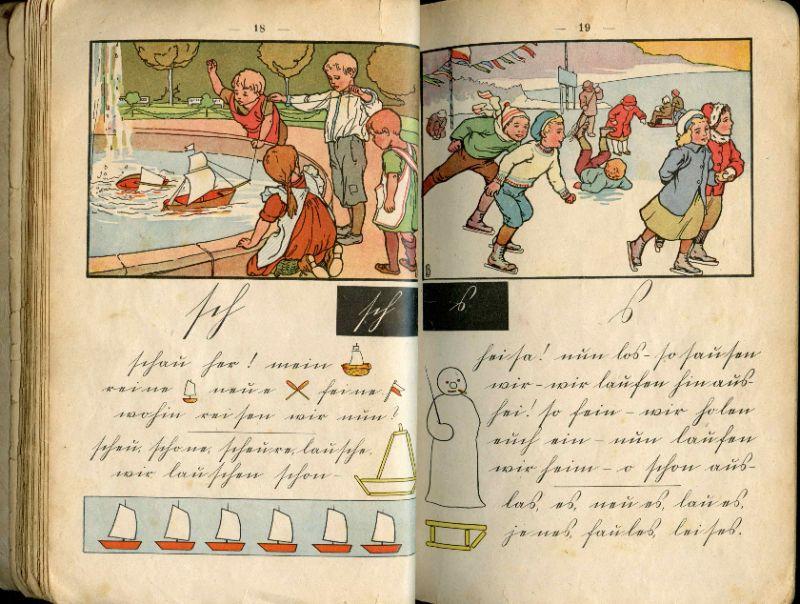 — 18 —
sch
sch
schau her! mein
reine neue feine
wohin reisen wir nun!
scheu, schone, scheure, lausche,
wir lauschen schon-
— 19 —
s
s
heisa! nun los- so sausen
wir- wir laufen hin aus-
hei! so fein- wir holen
euch ein- nun laufen
wir heim- o schon aus-
las, es, neues, laues,
jenes, faules, leises.